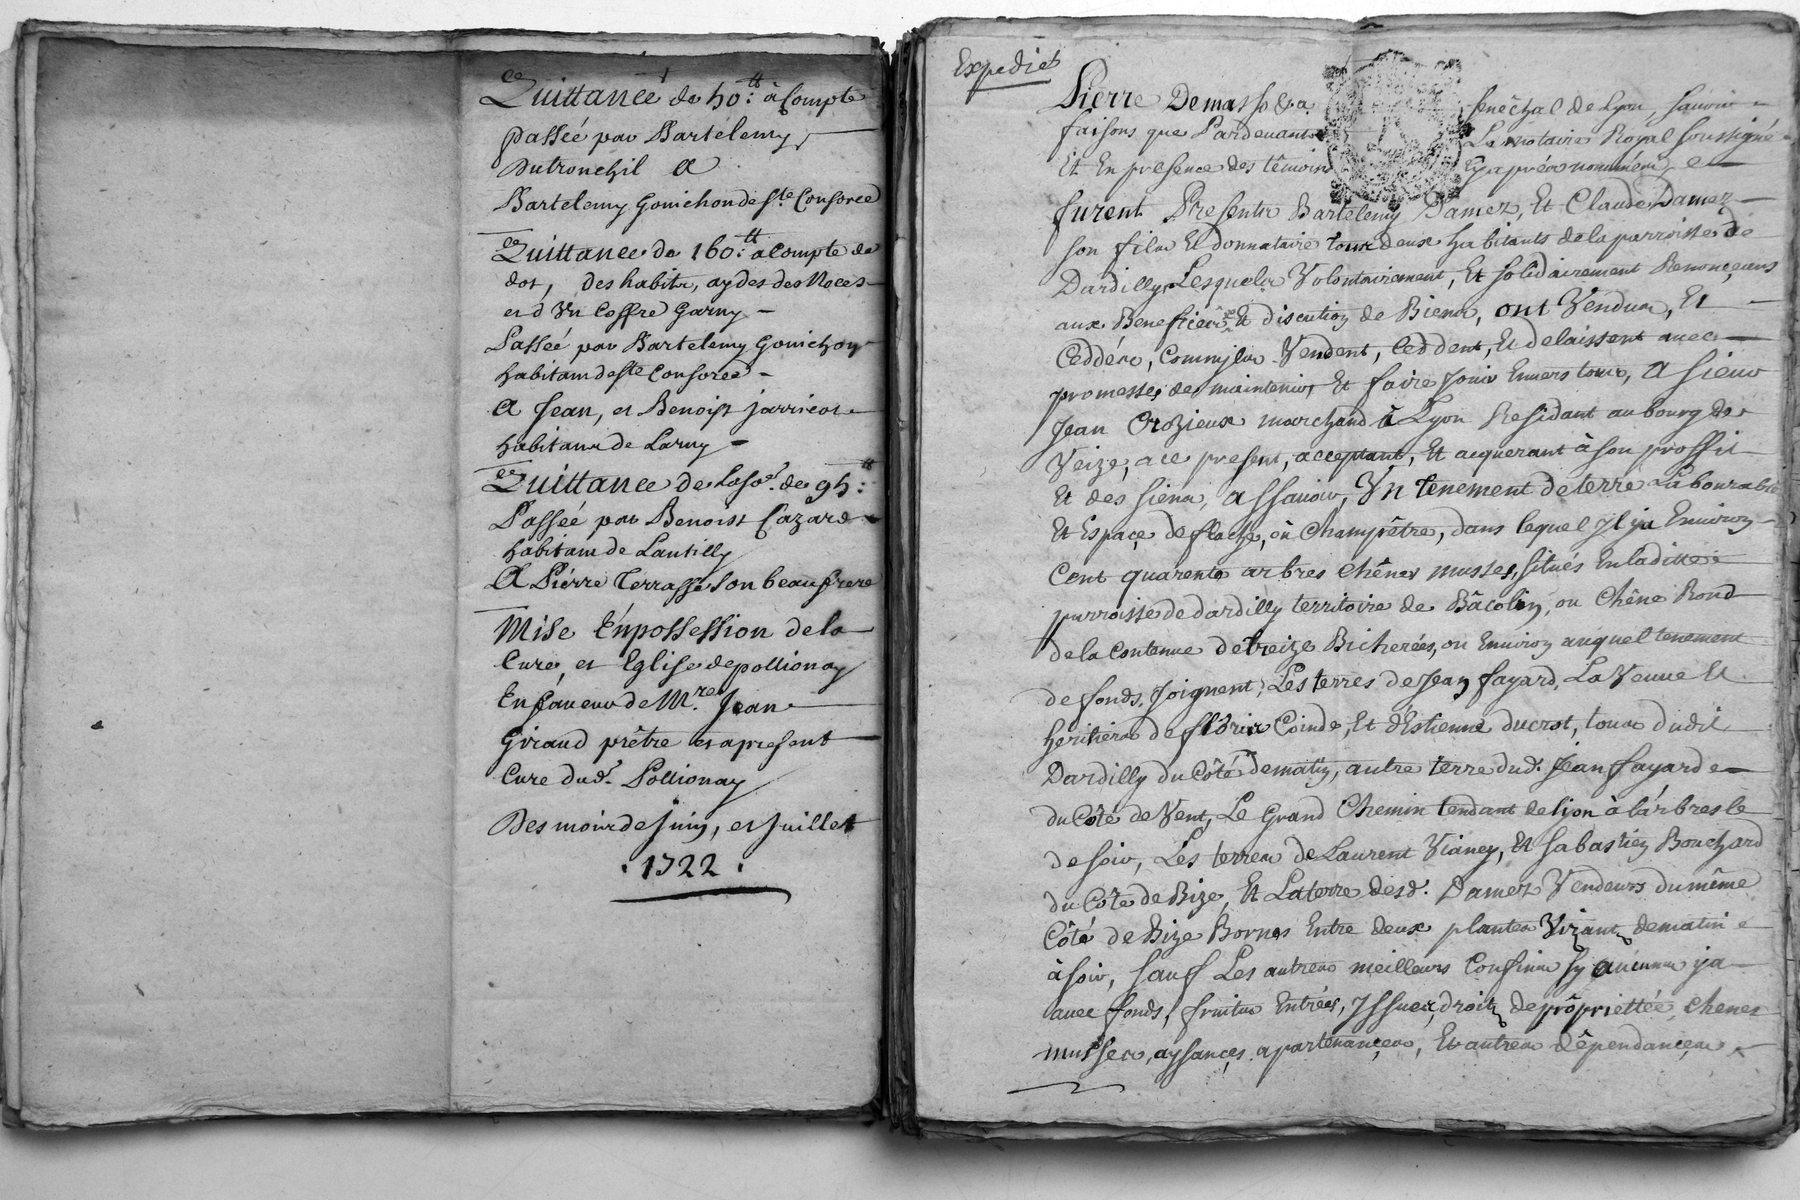 Quittance de 50:tt à Compte
passée par Bartelemy
Dutronchil A
Bartelemy Gonichon de Ste Consorce
Quittance de 160:tt a Compte de
dot, des habits, aydes des Noces
et d'Un Coffre Garny
Passée par Bartelemy Gonichon
habitant de Ste Consorce
A Jean, et Benoist jarricot
habitans de Larny
Quittance de de 95:tt
Passée par Benoist Cazard
habitant de Lantilly
A Piérre Terrasse Son beau frere
Mise Enpossession de la
Cure, et Eglise de pollionay
En faveur de Mre. Jean
Giraud prêtre et apresent
Cure dud. Pollionay
Des mois de Juin, et Juillet
. 1722 .
Expedié
Pierre Demasso &a Senêchal de Lyon, Savoir
faisons que Pardevant Le Notaire Royal Soussigné
Et En presence des têmoins Cy aprés nommés
furent Presents Bartelemy Damez, Et Claude Damez
son fils Et donnataire tous deux habitants de la parroisse de
Dardilly, Lesquels Volontairement, Et solidairement Renonçeans
aux Benefices Et discution de Biens, ont Vendus, Et
Ceddés, Comm'ils Vendent, Ceddent, Et delaissent avec
promesses de maintenir Et faire Jouir Envers tous, A Sieur
Jean Orozieux marchand à Lyon Residant au bourg de
Veize, a ce present, acceptant, Et acquerant à son proffit
Et des siens, assavoir, Un tenement de terre Labourable
Et Espaçe de flache, où Champêtre, dans lequel Jl y a Environ
Cent quarente arbres chênes musses, situés En laditte
parroisse de dardilly territoire de Bâcolin, ou Chêne Rond
de la Contenue de treize Bicherées, ou Environ auquel tenement
de fonds, Joignent, Les terres de Jean fayard, La Veuve Et
heritiers de fleurie Coinde, Et d'Estienne ducrot, tous dudit
Dardilly du Côté de matin, autre terre dud. Jean fayard
du Côté de Vent, Le Grand Chemin tendant de lyon à lárbresle
de soir, Les terres de Laurent Vianey, Et Sabastien Bouchard
du Côté de Bize, Et La terre desd. Damez Vendeurs du même
Côté de Bize Bornes Entre deux plantés Vizants de matin
à soir, sauf Les autres meilleurs Confins sy aucuns y a
avec fonds, fruits Entrées, Jssues, droits de proprietté, chenes
musses, aysançes apartenançes, Et autres dêpendançes